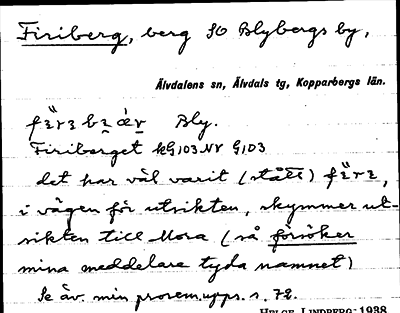 Firiberg, berg SO Blybergs by,
Älvdalens sn, Älvdals tg, Kopparbergs län.
Bly.
Firiberget kG103NV G103
det har väl varit (stått)
i vägen för utsikten, skymmer ut-
sikten till Mora (så försöker
mina meddelare tyda namnet)
Se äv. min prosem.upps. s. 72.
HELGE LINDBERG 1938